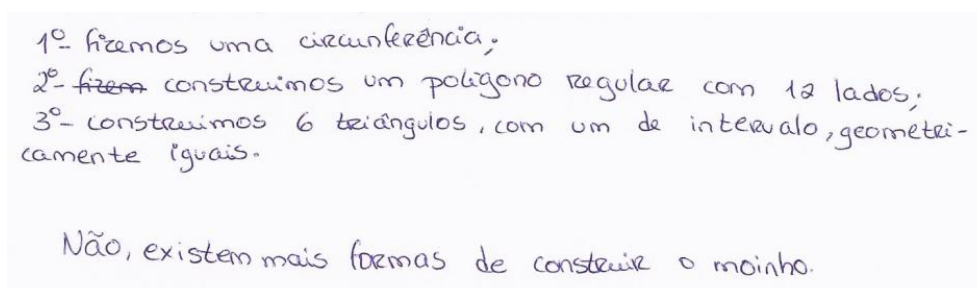 1º- fizemos uma circunferência;
2º- fizem construimos um polígono regular com 12 lados;
3º- construimos 6 triângulos, com um de intervalo, geometri-
camente iguais.
Não, existem mais formas de construir o moinho.